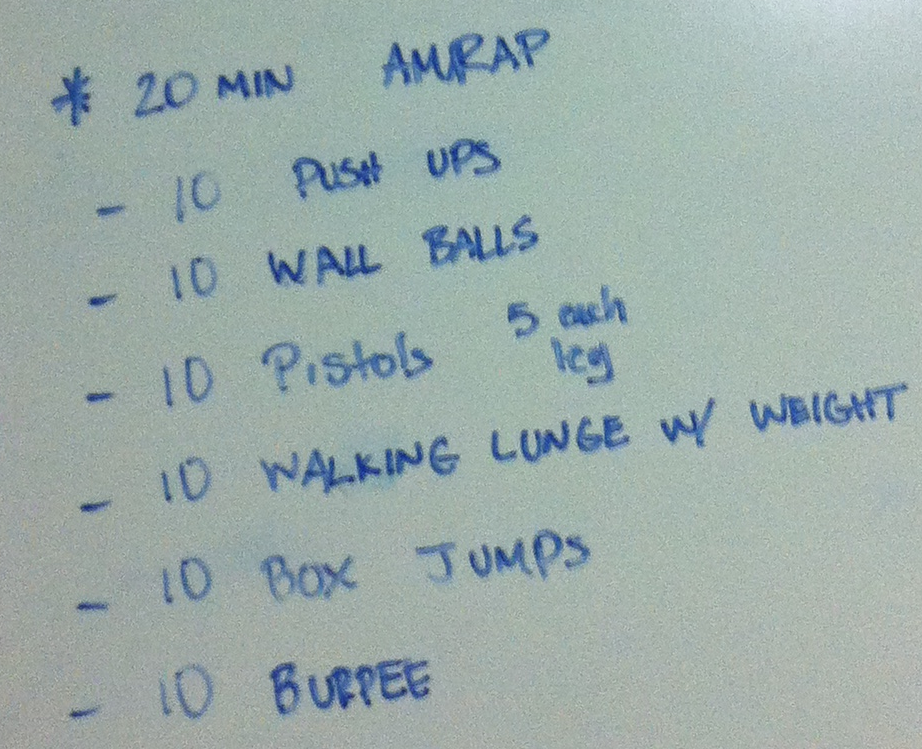 * 20 MIN AMRAP
- 10 PUSH UPS
- 10 WALL BALLS
- 10 Pistols 5 each leg
- 10 WALKING LUNGE W/ WEIGHT
- 10 BOX JUMPS
- 10 BURPEE